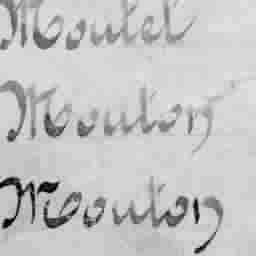 Moulel
Mouton
Mouton